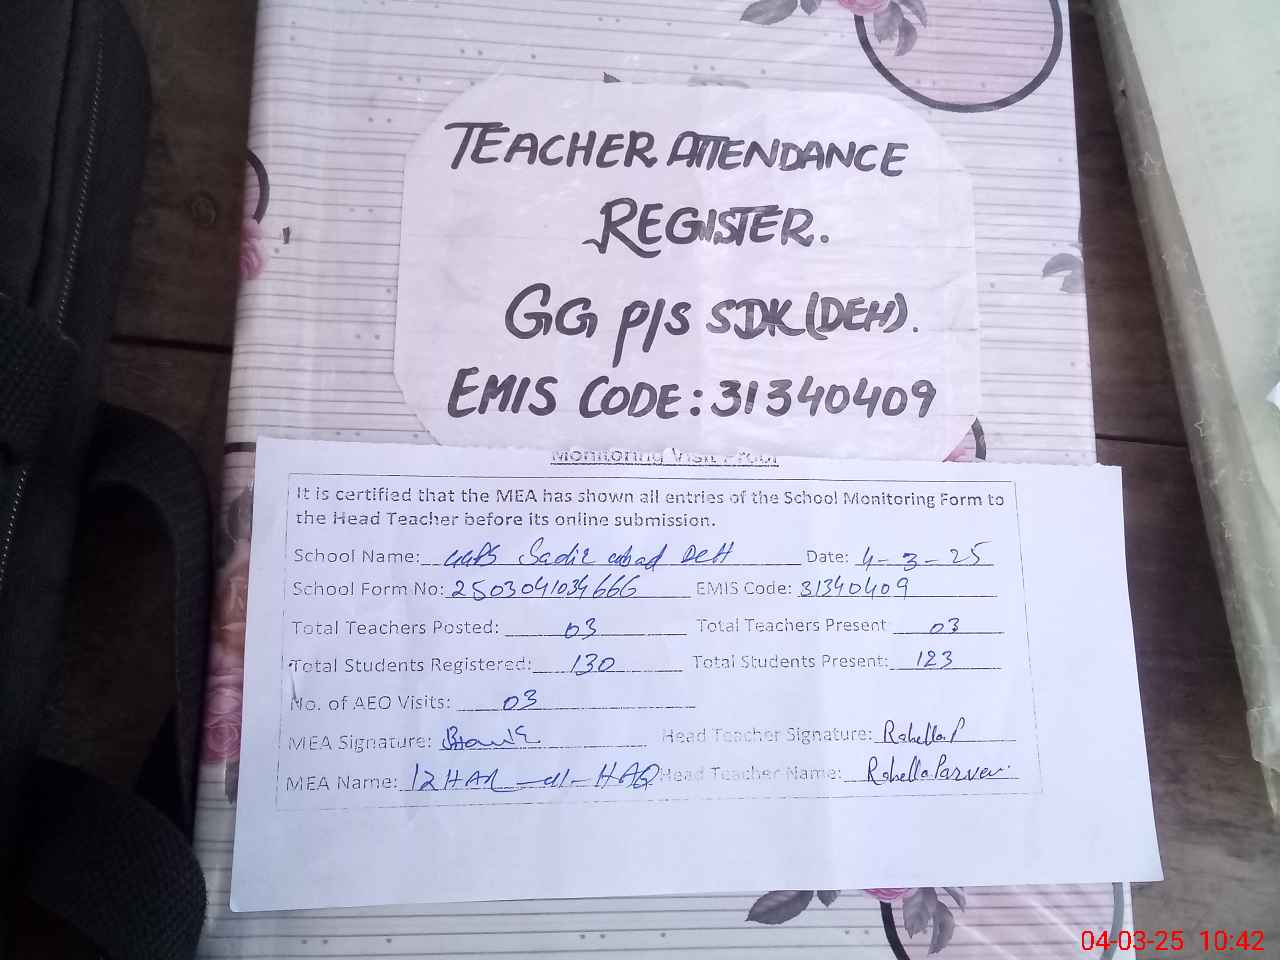 TEACHER ATTENDANCE
REGISTER.
GG P/S SDK (DEH).
EMIS CODE: 31340409
Monitoring Visit Proof
It is certified that the MEA has shown all entries of the School Monitoring Form to
the Head Teacher before its online submission.
School Name: GGPS Sadiq abad DEH Date: 4-3-25
School Form No: 2503041034666 EMIS Code: 31340409
Total Teachers Posted: 03 Total Teachers Present 03
Total Students Registered: 130 Total Students Present: 123
No. of AEO Visits: 03
MEA Signature: Head Teacher Signature: Rahella P
MEA Name: IZHAR-ul-HAQ Head Teacher Name: Rahella Parveen
04-03-25 10:42